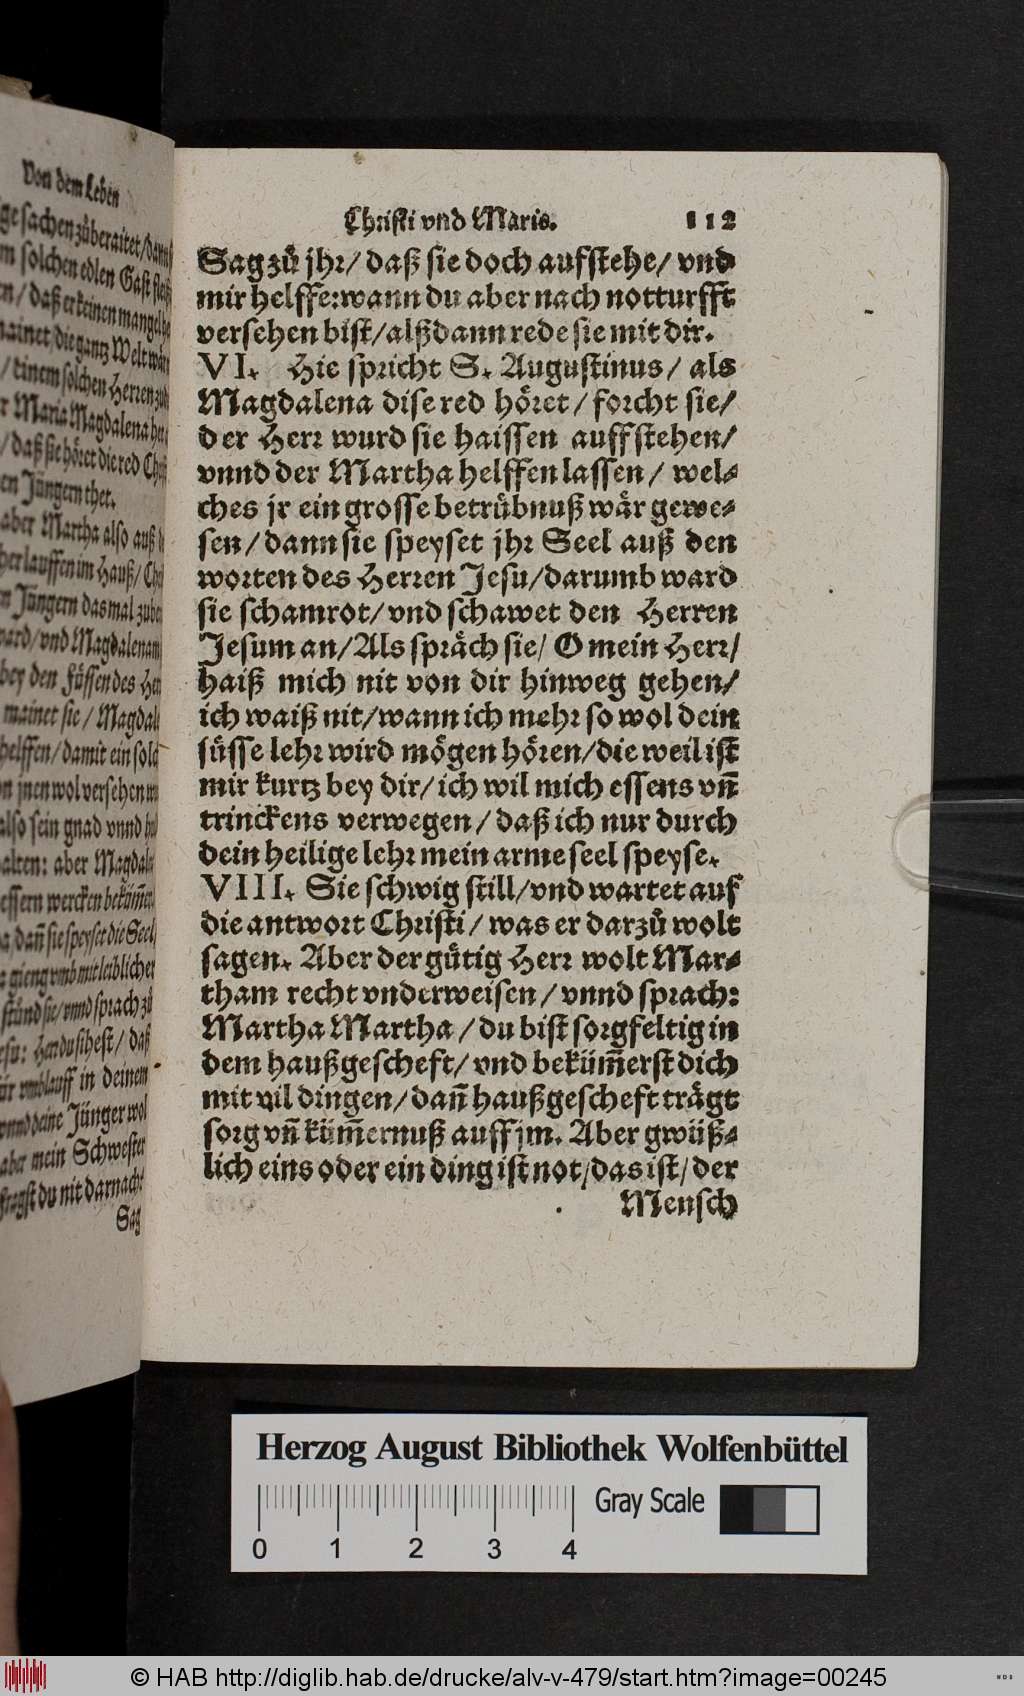 Von dem Leben
ge sachen zůberaitet/dann
m solchen edlen Gast fleiß
en/daß er keinen mangel he
mainet/die gantz Welt wär
/einem solchen Herren zu
r Maria Magdalena her
/daß sie höret die red Chri
en Jüngern thet.
aber Martha also auß
her lauffen im Hauß/Chri
n Jüngern das mal zube
ward/vnd Magdalenam
bey den Füssen des Her
mainet sie/Magdal
helffen/damit ein solch
on jnen wol versehen
also sein gnad vnnd
alten: aber Magdale
essern wercken bekům̄ert
dañ sie speyset die Seel
gieng vmb mit leiblicher
stůnd sie/vnnd sprach zů
esu: Herr du sihest/daß
ir vmblauff in deinem
vnnd deine Jünger wol
aber mein Schwester
fragst du nit darnach
Sag
Christi vnd Marie. 112
Sag zů jhr/daß sie doch aufstehe/vnd
mir helffe: wann du aber nach notturfft
versehen bist/alßdann rede sie mit dir.
VI. Hie spricht S. Augustinus/als
Magdalena dise red höret/forcht sie/
der Herr wurd sie haissen auffstehen/
vnnd der Martha helffen lassen/wel-
ches jr ein grosse betrübnuß wär gewe-
sen/dann sie speyset jhr Seel auß den
worten des Herren Jesu/darumb ward
sie schamrot/vnd schawet den Herren
Jesum an/Als spräch sie/O mein Herr/
haiß mich nit von dir hinweg gehen/
ich waiß nit/wann ich mehr so wol dein
süsse lehr wird mögen hören/die weil ist
mir kurtz bey dir/ich wil mich essens vñ
trinckens verwegen/daß ich nur durch
dein heilige lehr mein arme seel speyse.
VIII. Sie schwig still/vnd wartet auf
die antwort Christi/was er darzů wolt
sagen. Aber der gütig Herr wolt Mar-
tham recht vnderweisen/vnnd sprach:
Martha Martha/du bist sorgfeltig in
dem haußgescheft/vnd beküm̄erst dich
mit vil dingen/dañ haußgescheft trägt
sorg vñ küm̄ernuß auff jm. Aber gwüß-
lich eins oder ein ding ist not/das ist/der
Mensch
Herzog August Bibliothek Wolfenbüttel
Gray Scale
0 1 2 3 4
© HAB http://diglib.hab.de/drucke/alv-v-479/start.htm?image=00245